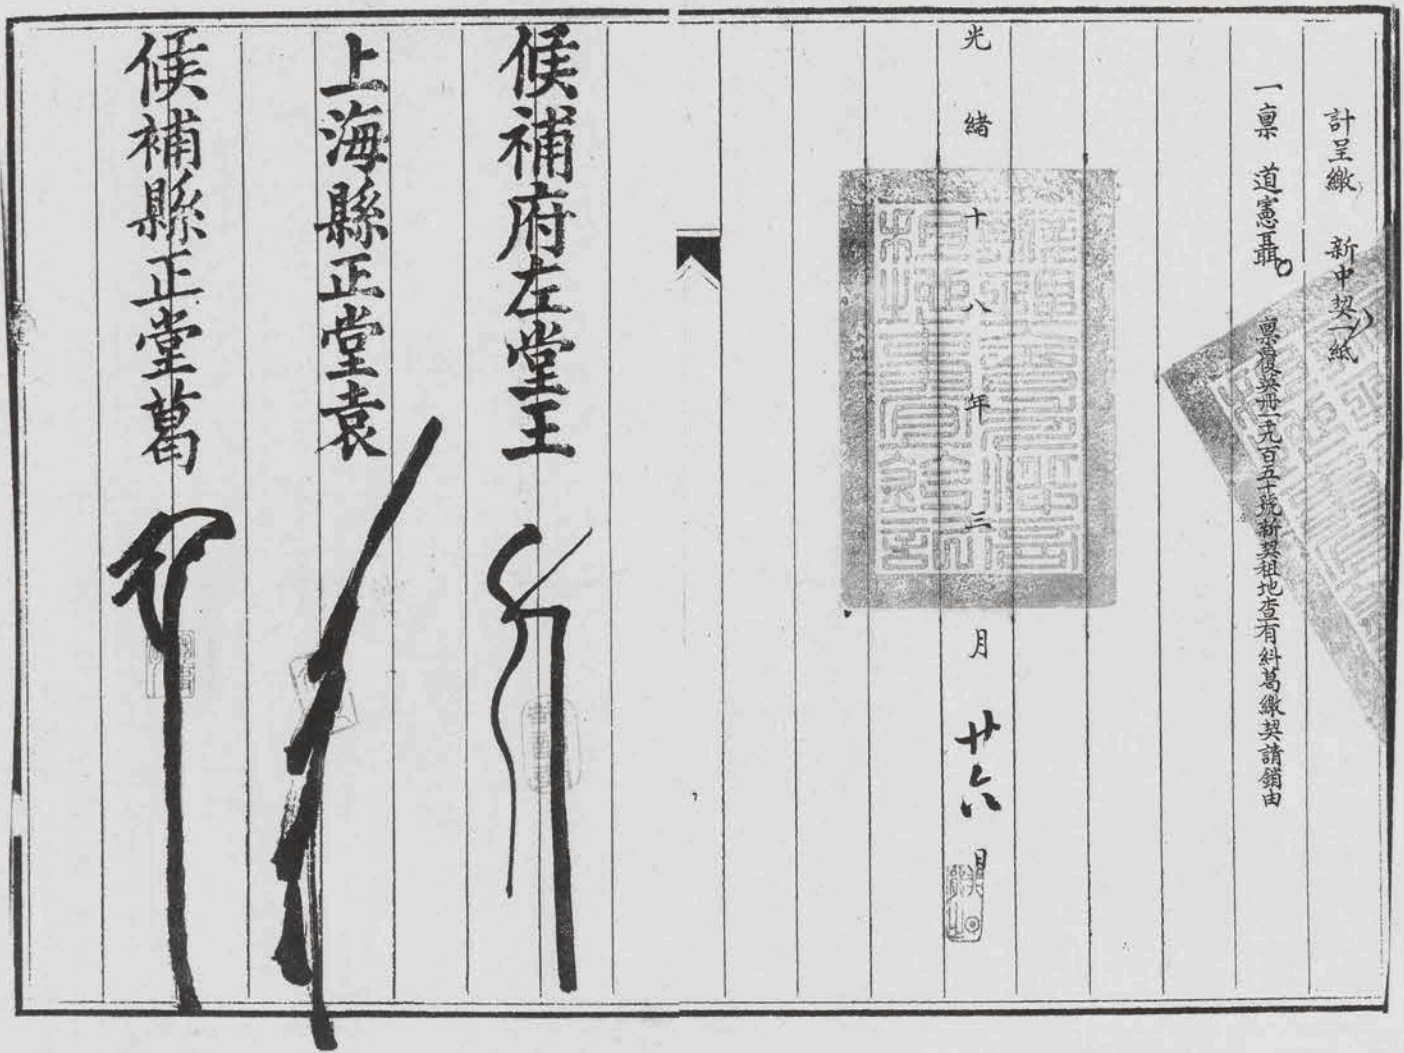 計呈繳 新中契一紙
一稟 道憲聶 稟覆英冊一千九百五十號新契租地查有糾葛繳契請銷由
光緒十八年三月廿六日
候補府左堂王
上海縣正堂袁
候補縣正堂葛